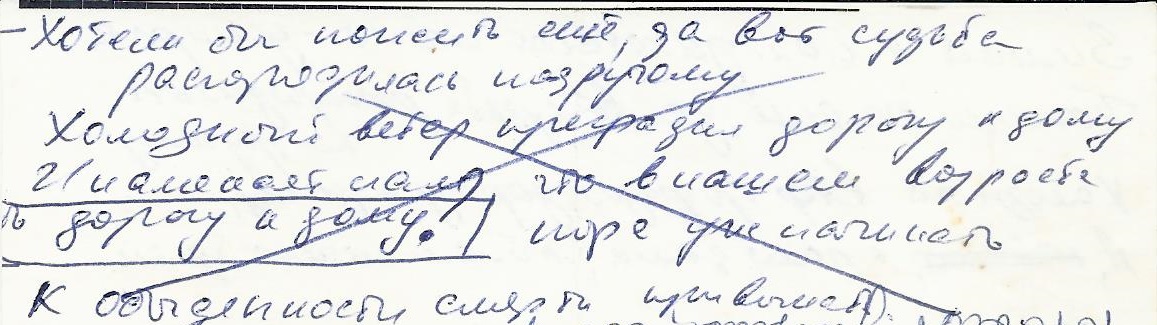 – Хотели бы пожить ещё, да вот судьба
распорядилась по другому
Холодный ветер преградил дорогу к дому
И намекает нам, что в нашем возрасте
ть дорогу к дому. пора уже начинать
К обыденности смерти привыкать